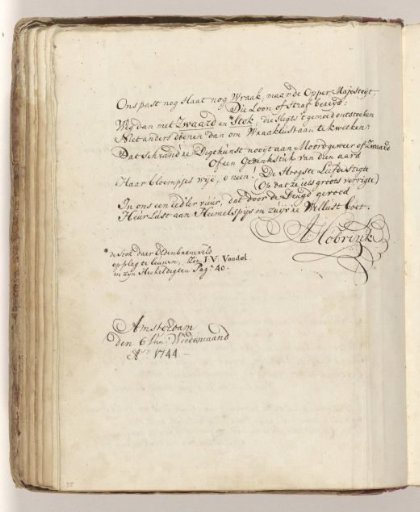 Ons past nog Haat nog Wraak, maar de Opper Majesteyt,
Die Loon of Straf bereyd:
Weg dan met Zwaard en *Stok, die slegts 't gemoed ontsteeken
Niet anders dienen dan om Wraaklust aan te kweeken,
Dat Schrand're Digtkunst nooyt aan Moordgeweer of Zwaard
Of een Spinkstuk van dien aard
Haar bloempjes wyd, ô neen! De Hoogste Liefde stigte
(Ob dat ze iets groots verrigte)
In ons een eed'ler vuur, dat door de Deugd gevoed
Heur Lust aan Hemelspys en zuyv're Wellust boet.
A Hobrink
* de Stok daar Oldenbarneveld
op plag te leunen, Zie J. V. Vondel
in zyn Hekeldigten Pag.ª 40.
Amsterdam
den 6 den Wiedemaand
Aº 1744